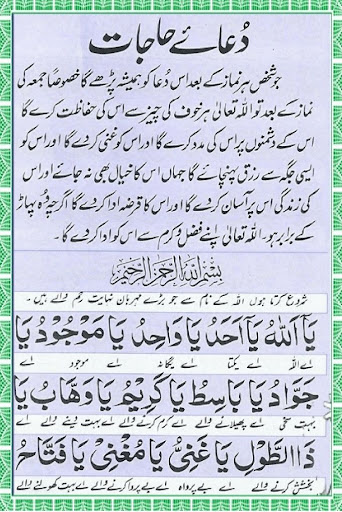 دُعائے حاجات
جو شخص ہر نماز کے بعد اس دُعا کو ہمیشہ پڑھے گا خصوصًا جمعہ کی
نماز کے بعد تو اللہ تعالیٰ ہر خوف کی چیز سے اس کی حفاظت کرے گا
اس کے دشمنوں پر اس کی مدد کرے گا اور اس کو غنی کر دے گا اور اس کو
ایسی جگہ سے رزق پہنچائے گا جہاں اس کا خیال بھی نہ جائے اور اس
کی زندگی اس پر آسان کر دے گا اور اس کا قرضہ ادا کر دے گا اگرچہ وہ پہاڑ
کے برابر ہو۔ اللہ تعالیٰ اپنے فضل و کرم سے اس کو ادا کر دے گا ۔
بِسْمِ اللّٰهِ الرَّحْمٰنِ الرَّحِيْمِ
شروع کرتا ہوں اللہ کے نام سے جو بڑے مہربان نہایت رحم والے ہیں ۔
يَآ اَللّٰهُ يَآ اَحَدُ يَا وَاحِدُ يَا مَوْجُوْدُ يَا
اے اللہ اے یکتا اے یگانہ اے موجود اے
جَوَّادُ يَا بَاسِطُ يَا كَرِيْمُ يَا وَهَّابُ يَا
بہت سخی اے پھیلانے والے اے کرم کرنے والے اے بہت دینے والے اے
ذَاالطَّوْلِ يَا غَنِيُّ يَا مُغْنِيُ يَا فَتَّاحُ
بخشش کرنے والے اے بے پرواہ اے بے پروا کرنے والے اے بہت کھولنے والے